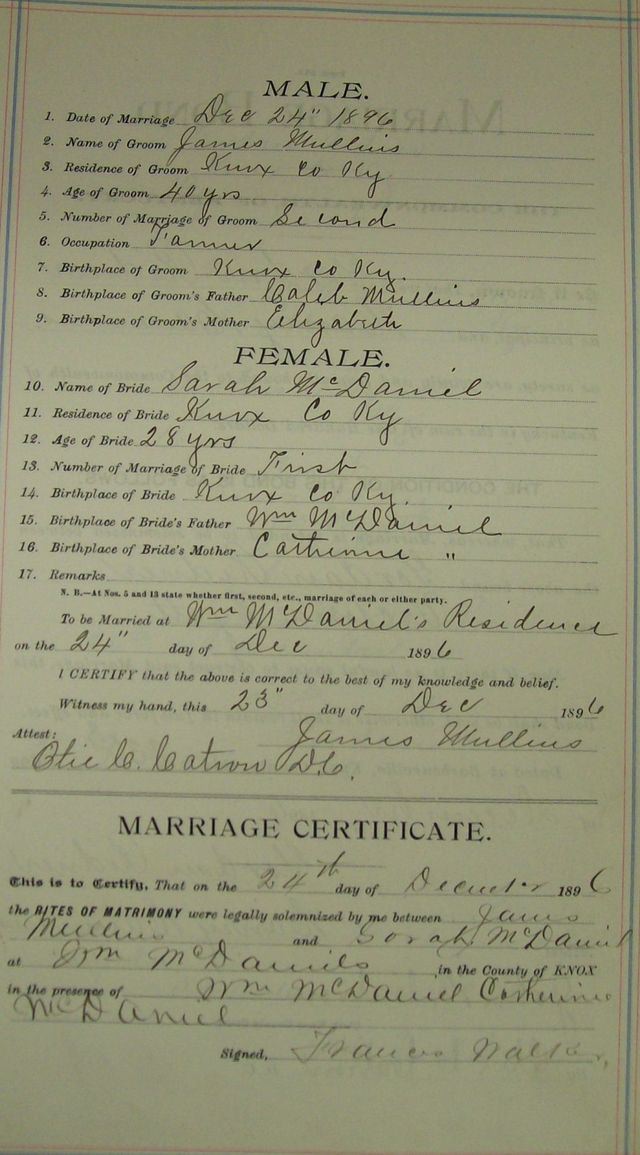 MALE.
1. Date of Marriage Dec 24" 1896
2. Name of Groom James Mullins
3. Residence of Groom Knox Co Ky
4. Age of Groom 40 yrs
5. Number of Marriage of Groom Second
6. Occupation Farmer
7. Birthplace of Groom Knox Co Ky.
8. Birthplace of Groom's Father Caleb Mullins
9. Birthplace of Groom's Mother Elizabeth
FEMALE.
10. Name of Bride Sarah McDaniel
11. Residence of Bride Knox Co Ky
12. Age of Bride 28 yrs
13. Number of Marriage of Bride First
14. Birthplace of Bride Knox Co Ky.
15. Birthplace of Bride's Father Wm McDaniel
16. Birthplace of Bride's Mother Catherine "
17. Remarks
N. B.—At Nos. 5 and 13 state whether first, second, etc., marriage of each or either party.
To be Married at Wm McDaniel's Residence
on the 24" day of Dec 1896
I CERTIFY that the above is correct to the best of my knowledge and belief.
Witness my hand, this 23" day of Dec 1896
James Mullins
Attest:
Otie C. Catron D.C.
MARRIAGE CERTIFICATE.
This is to Certify, That on the 24th day of December 1896
the RITES OF MATRIMONY were legally solemnized by me between James
Mullins and Sarah McDaniel
at Wm McDaniels, in the County of KNOX
in the presence of Wm McDaniel Catherine
McDaniel
Signed, Francis Walker